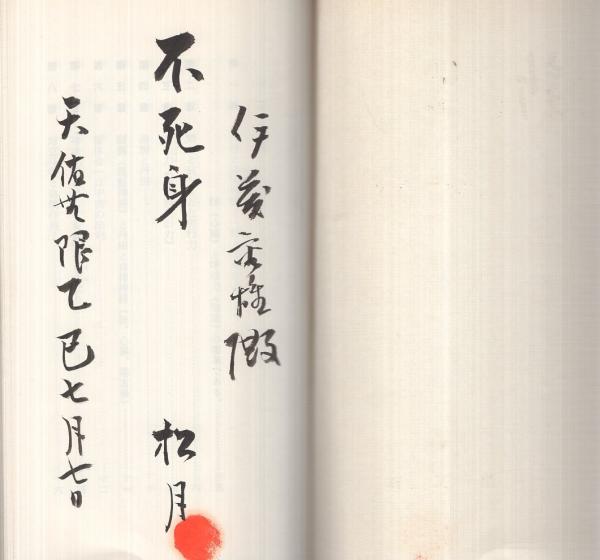 伊藤 雄殿
不死身
松月
天佑無限乙巳七月七日